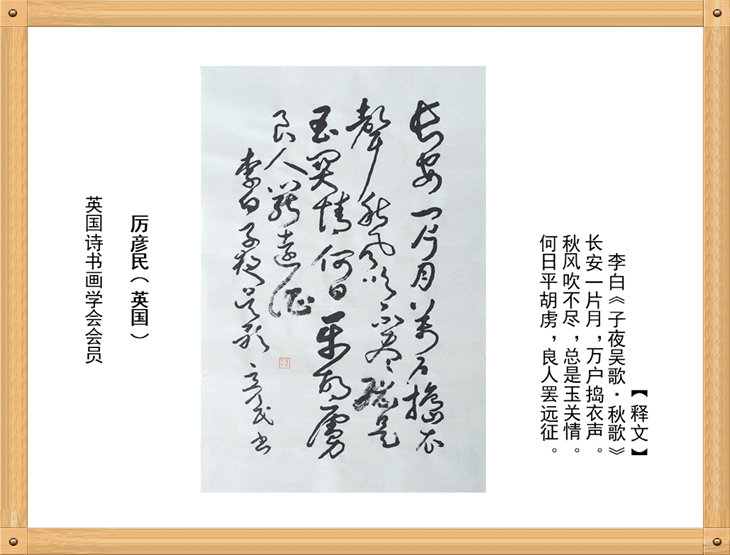 【释文】
李白《子夜吴歌·秋歌》
长安一片月，万户捣衣声。
秋风吹不尽，总是玉关情。
何日平胡虏，良人罢远征。
長安一片月萬户擣衣
聲秋風吹不盡總是
玉關情何日平胡虜
良人罷遠征
李白子夜吴歌 彦民书
厉彦民（英国）
英国诗书画学会会员